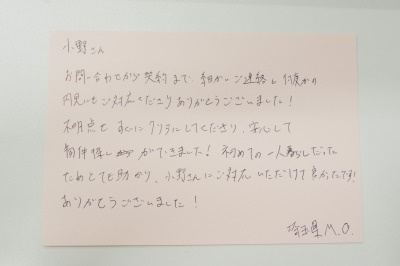 小野さん
お問い合わせから契約まで、細かいご連絡と何度かの
内見にもご対応くださりありがとうございました!
不明点もすぐにクリアにしてくださり、安心して
物件探しができました! 初めての一人暮らしだった
ためとても助かり、小野さんにご対応いただけて良かったです!
ありがとうございました!
埼玉県 M.O.